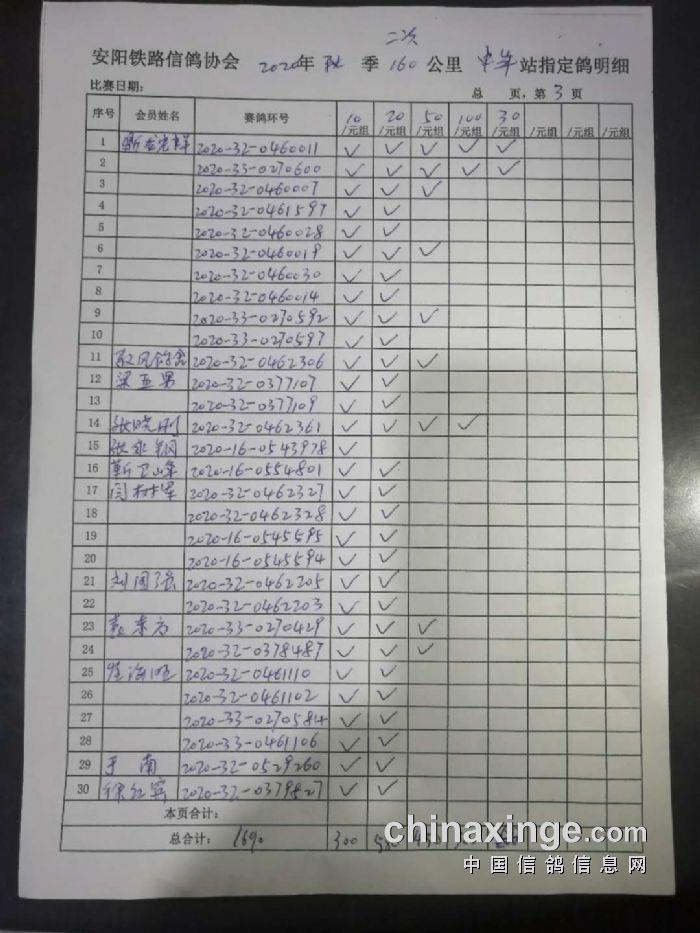 二次
安阳铁路信鸽协会 2020年 秋 季 160 公里 站指定鸽明细
比赛日期： 总 页，第 3 页
序号 会员姓名 赛鸽环号 10/元组 20/元组 50/元组 100/元组 30/元组 /元组 /元组 /元组
1 2020-32-0460011 ✓ ✓ ✓ ✓ ✓
2 2020-33-0270600 ✓ ✓ ✓ ✓ ✓
3 2020-32-0460007 ✓ ✓ ✓
4 2020-32-0461597 ✓ ✓
5 2020-32-0460028 ✓ ✓
6 2020-32-0460019 ✓ ✓ ✓
7 2020-32-0460030 ✓ ✓
8 2020-32-0460014 ✓ ✓
9 2020-33-0270592 ✓ ✓ ✓
10 2020-33-0270597 ✓ ✓
11 2020-32-0462306 ✓ ✓ ✓
12 梁亚男 2020-32-0377107 ✓ ✓
13 2020-32-0377109 ✓ ✓
14 张晓刚 2020-32-0462361 ✓ ✓ ✓ ✓
15 张永钢 2020-16-0543978 ✓
16 靳卫峰 2020-16-0554801 ✓ ✓
17 2020-32-0462327 ✓ ✓
18 2020-32-0462328 ✓ ✓
19 2020-16-0545595 ✓ ✓
20 2020-16-0545594 ✓ ✓
21 刘国强 2020-32-0462205 ✓ ✓
22 2020-32-0462203 ✓ ✓
23 袁东方 2020-33-0270429 ✓ ✓ ✓
24 2020-32-0378487 ✓ ✓ ✓
25 2020-32-0461110 ✓ ✓
26 2020-32-0461102 ✓ ✓
27 2020-33-0270584 ✓ ✓
28 2020-33-0461106 ✓ ✓
29 于南 2020-32-0529260 ✓ ✓
30 徐红宾 2020-32-0379827 ✓ ✓
本页合计：
总合计： 1690 300
chinaxinge.com
中国信鸽信息网